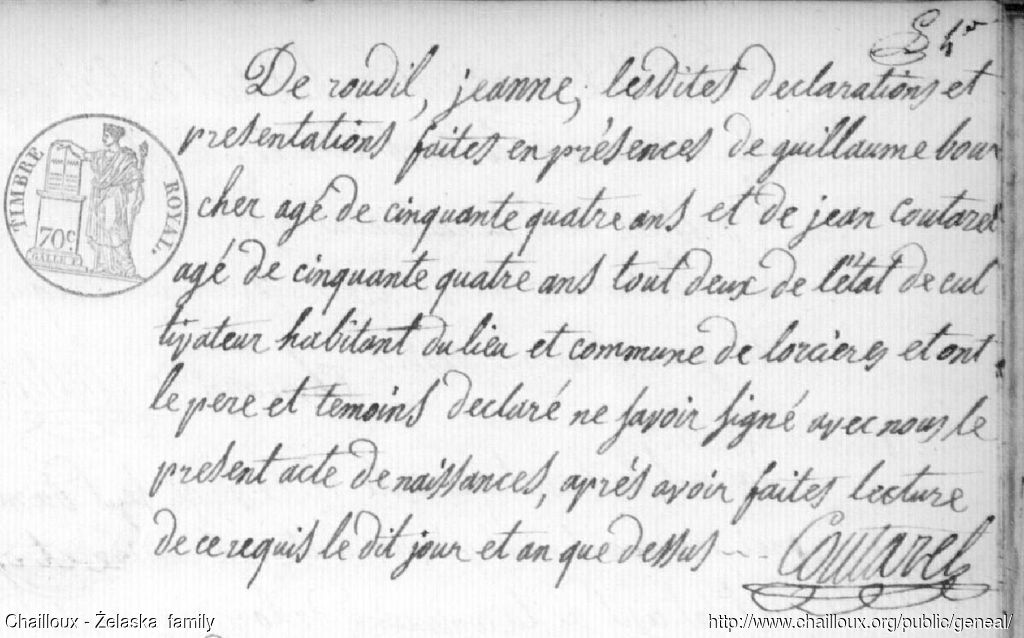 De roudil, jeanne, lesdites declarations et
presentations faites en présences de guillaume bou
cher agé de cinquante quatre ans et de jean Coutarel
agé de cinquante quatre ans tout deux de l'état de cul
tivateur habitant du lieu et commune de lorcieres et ont
le pere et temoins declaré ne savoir signé avec nous le
present acte de naissances, aprés avoir faites lecture
de ce requis le dit jour et an que dessus
Coutarel
TIMBRE ROYAL.
70c
Chailloux - Żelaska family
http://www.chailloux.org/public/geneal/